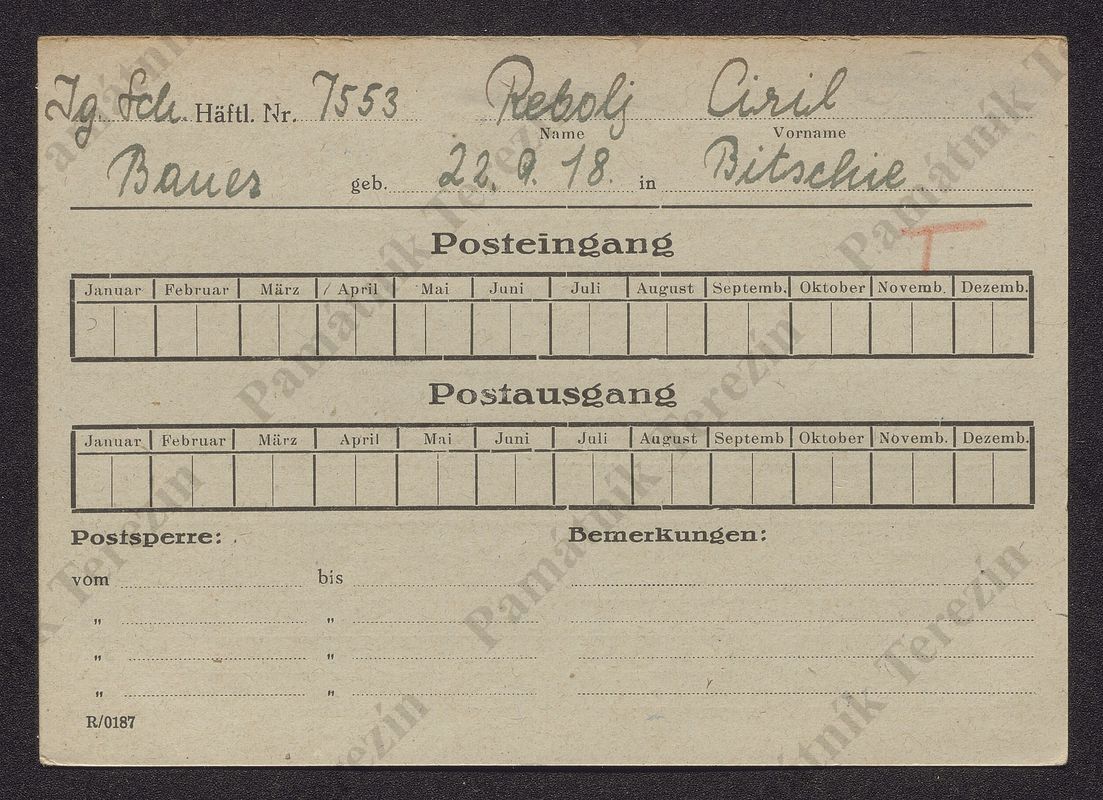 Jg. Sch. Häftl. Nr. 7553 Rebolj Ciril
Name Vorname
Bauer geb. 22. 9. 18. in Bitschie
Posteingang T
Januar Februar März April Mai Juni Juli August Septemb. Oktober Novemb. Dezemb.
Postausgang
Januar Februar März April Mai Juni Juli August Septemb Oktober Novemb. Dezemb.
Postsperre: Bemerkungen:
vom bis
" "
" "
" "
R/0187
Památník Terezín